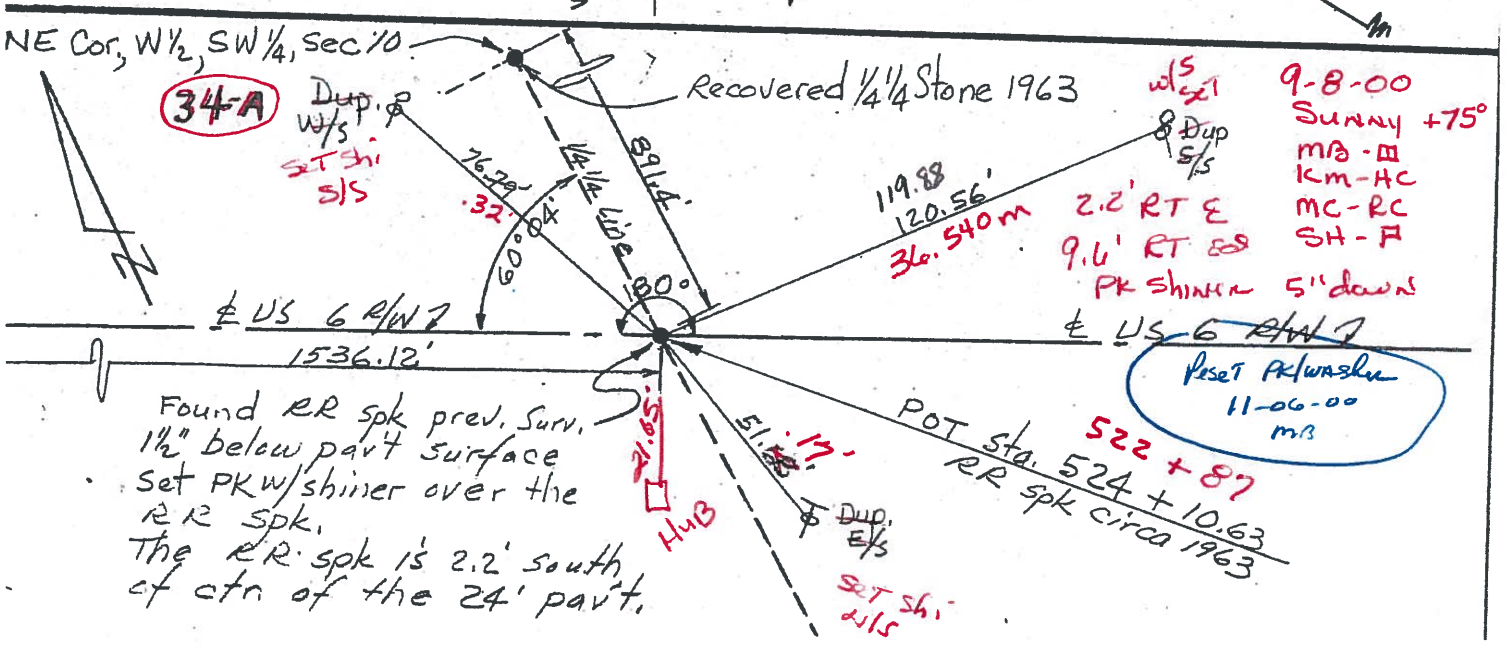 NE Cor, W½, SW¼, Sec 10
34-A
Dup.
W/s
SeT Shi
S/S
Recovered ¼¼ Stone 1963
w/s
set
Dup
S/s
9-8-00
SUNNY +75°
MB - III
KM-HC
MC-RC
SH-
76.79'
.32'
¼¼ Line
891.4'
60°
80°
119.88
120.56'
36.540m
2.2' RT ℄
9.6' RT
PK Shiner 5" down
℄ US 6 R/W
℄ US 6 R/W
1536.12'
Reset PK/washer
11-06-00
MB
Found RR spk prev. Surv.
1½" below pav't surface
Set PK w/shiner over the
RR spk.
The RR spk is 2.2' south
of ctr of the 24' pav't.
21.65'
HuB
51.
.17'
Dup.
E/s
SeT Shi
W/s
POT Sta. 524 + 10.63
522 + 87
RR spk circa 1963